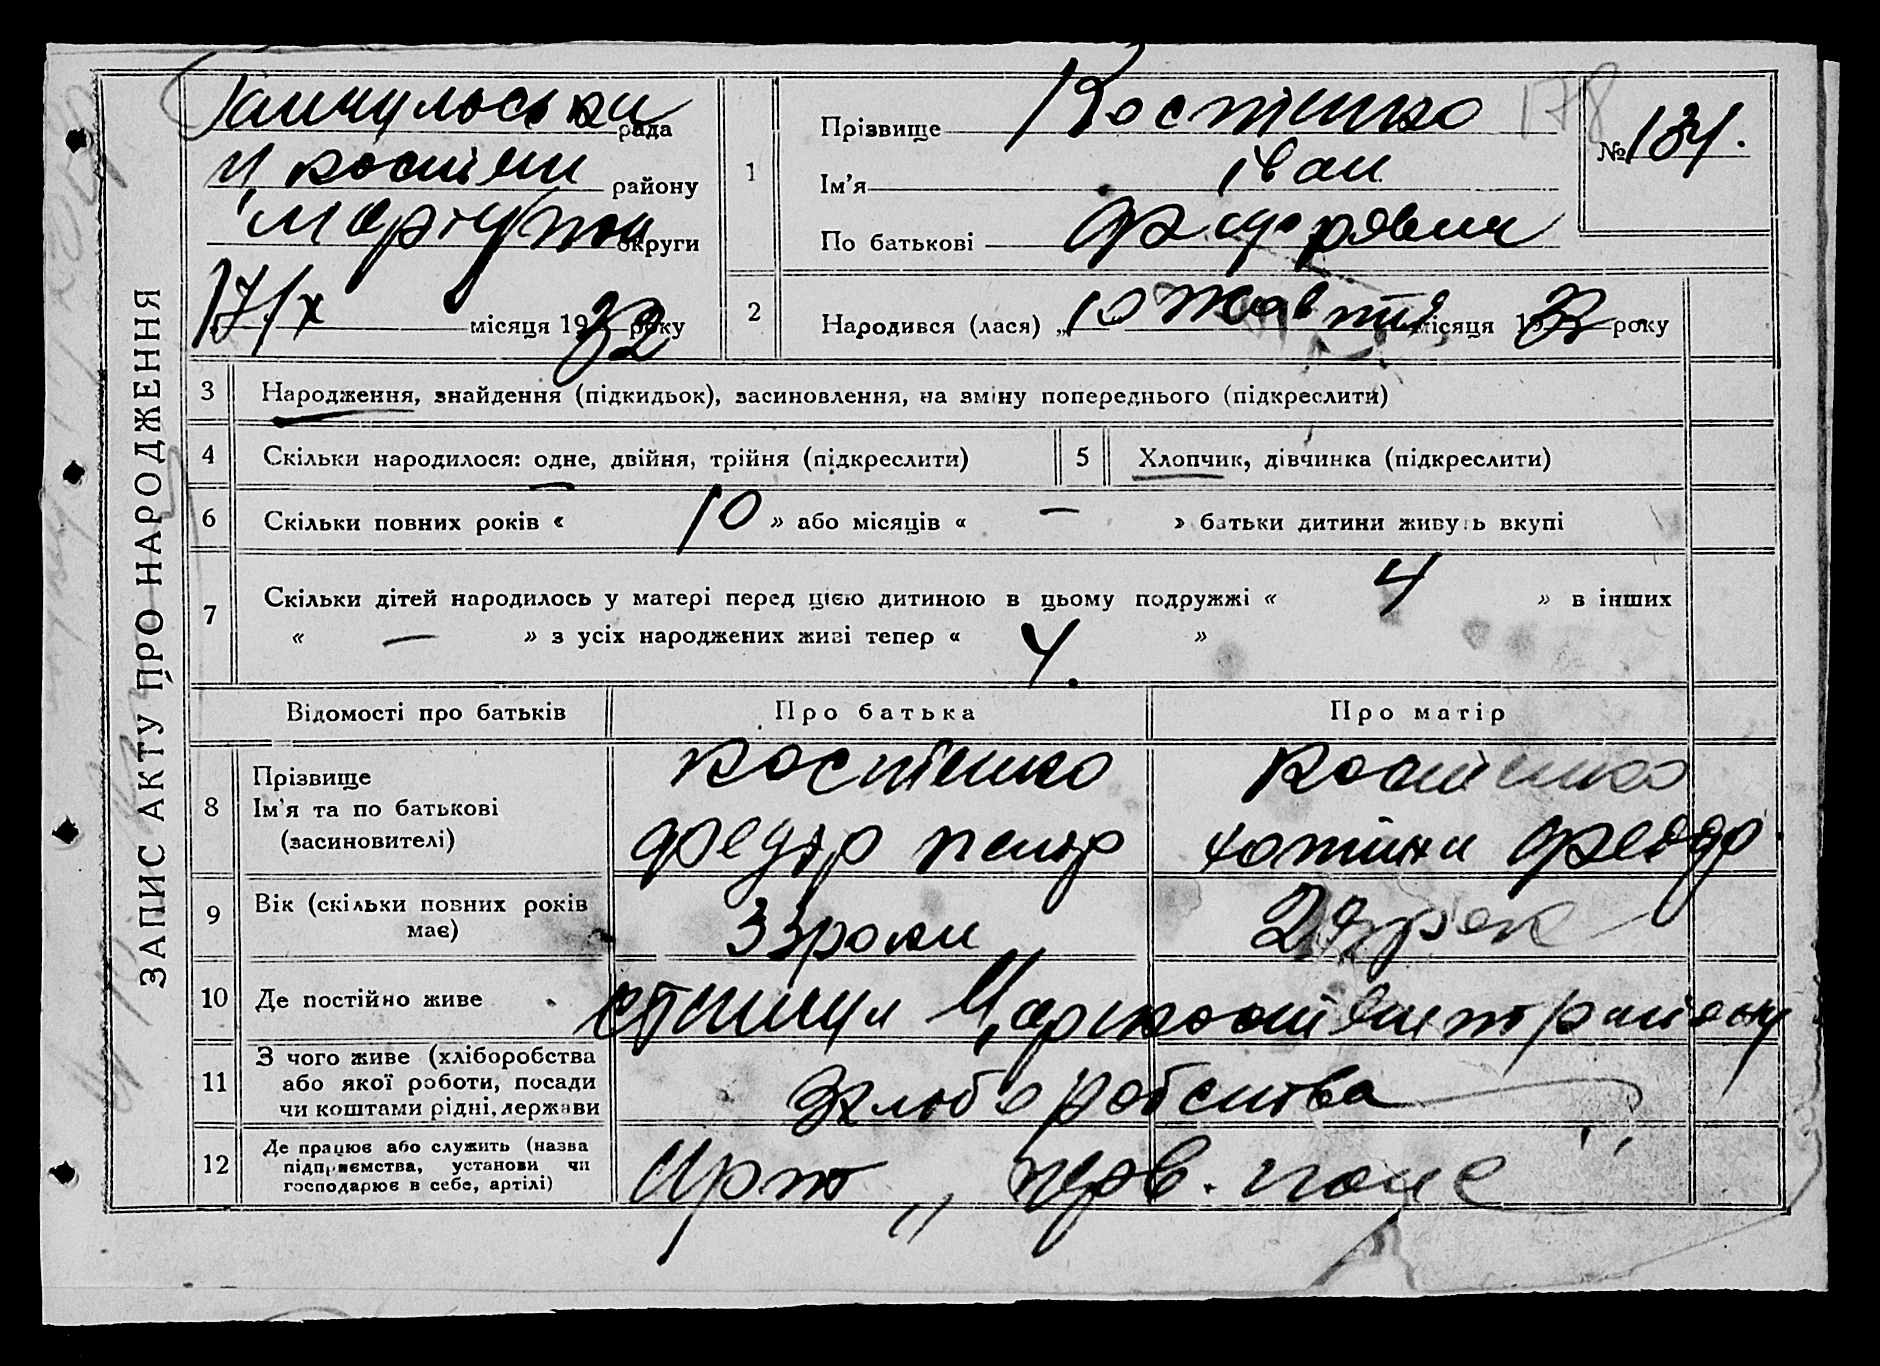 рада
району
округи
17/х місяця 1932 року
178
№ 134.
1 Прізвище Костенко
Ім'я Іван
По батькові Федорович
2 Народився (лася) „10 Жовтня місяця 1932 року
ЗАПИС АКТУ ПРО НАРОДЖЕННЯ
3 Народження, знайдення (підкидьок), засиновлення, на зміну попереднього (підкреслити)
4 Скільки народилося: одне, двійня, трійня (підкреслити) 5 Хлопчик, дівчинка (підкреслити)
6 Скільки повних років « 10 » або місяців « — » батьки дитини живуть вкупі
7 Скільки дітей народилось у матері перед цією дитиною в цьому подружжі « 4 » в інших
« — » з усіх народжених живі тепер « 4. »
Відомості про батьків Про батька Про матір
8 Прізвище Костенко Костенко
Ім'я та по батькові Федір Петр Федор.
(засиновителі)
9 Вік (скільки повних років має) 33 роки 29 рок
10 Де постійно живе району
11 З чого живе (хліборобства
або якої роботи, посади
чи коштами рідні, держави
хлюборобства
12 Де працює або служить (назва
підприємства, установи чи
господарює в себе, артілі)